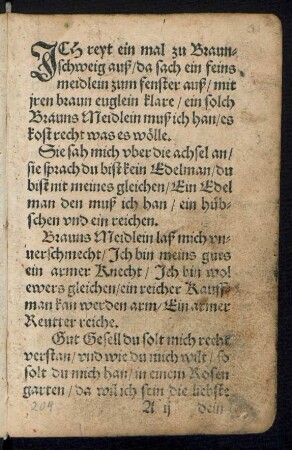 ICH reyt ein mal zu Braun-
schweig auß/da sach ein feins
meidlein zum fenster auß/mit
jren braun euglein klare/ein solch
Brauns Meidlein muß ich han/es
kost recht was es wölle.
Sie sah mich vber die achsel an/
sie sprach du bist kein Edelman/du
bist nit meines gleichen/Ein Edel
man den muß ich han/ein hüb-
schen vnd ein reichen.
Brauns Meidlein laß mich vn-
uerschmecht/Ich bin meins guts
ein armer Knecht/Ich bin wol
ewers gleichen/ein reicher Kauff-
man kan werden arm/Ein armer
Reutter reiche.
Gut Gesell du solt mich recht
verstan/vnd wie du mich wilt/so
solt du mich han/in einem Rosen
garten/da wil ich sein die liebste
A ij dein
204